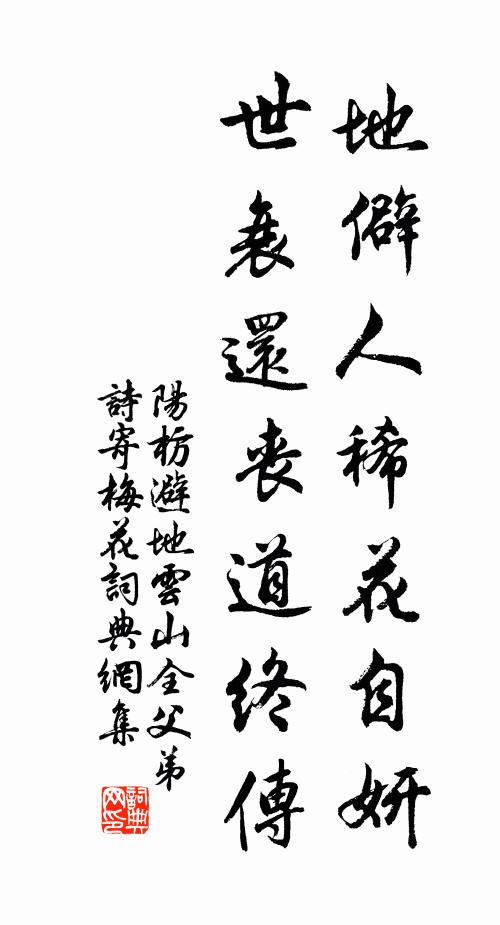 地僻人稀花自妍
世衰還喪道終傳
陽枋避地雲山全父弟
詩寄梅花詞典網集
詞典
网印